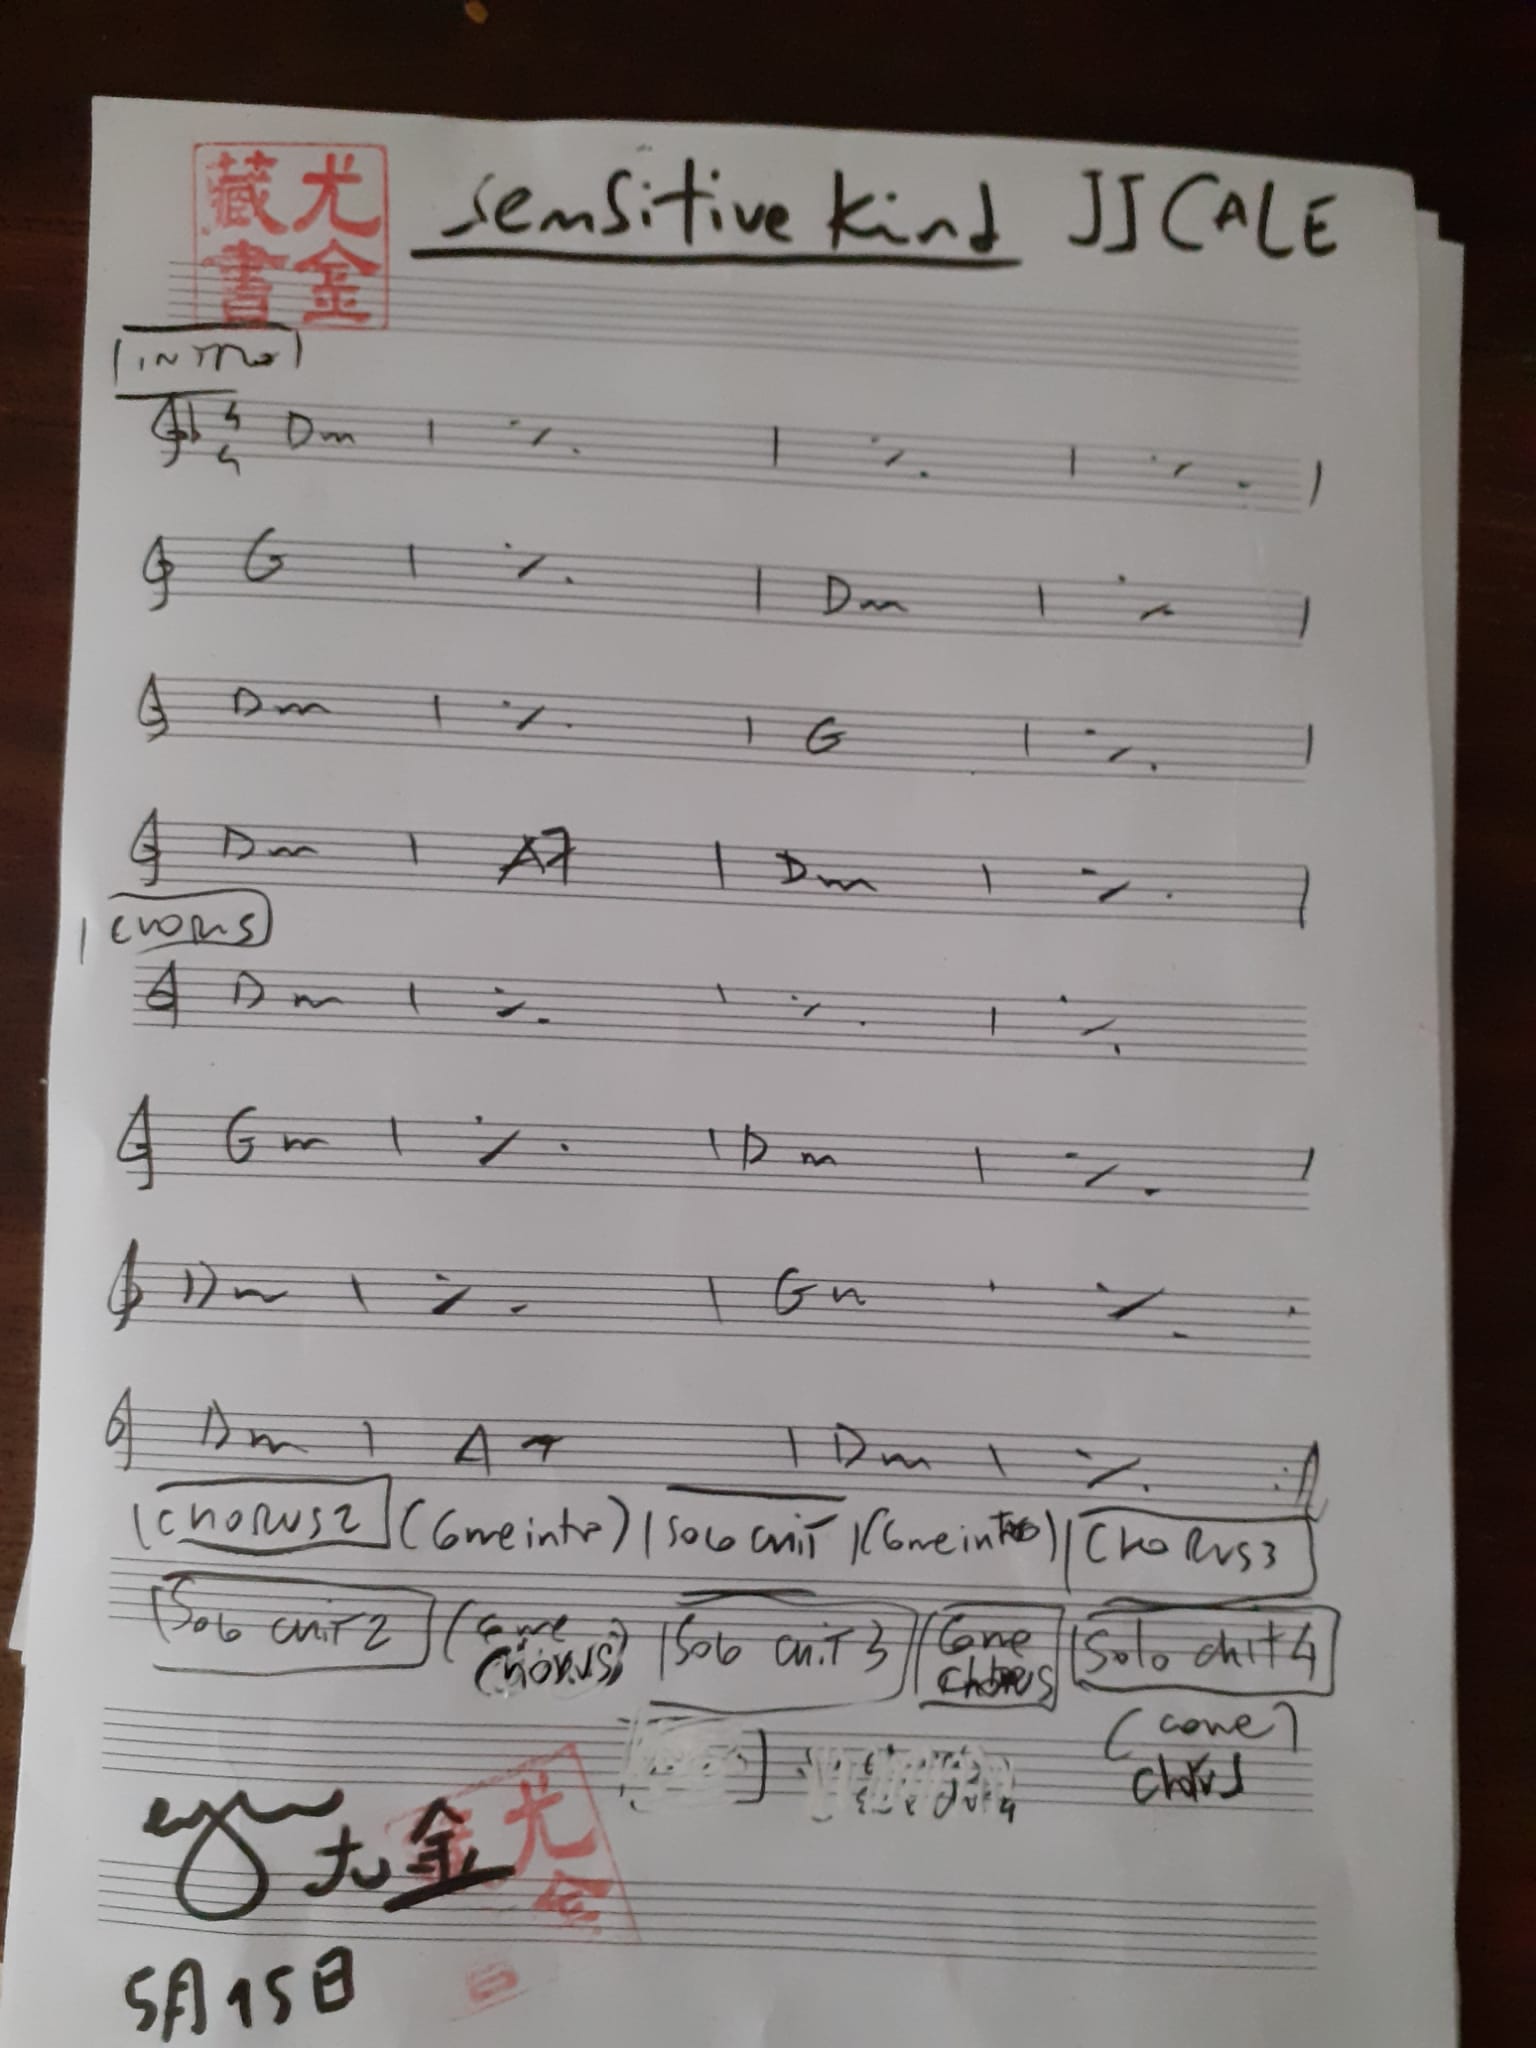 尤金藏書
Sensitive Kind JJ CALE
INTRO
4/4 Dm | ٪ | ٪ | ٪ |
G | ٪ | Dm | ٪ |
Dm | ٪ | G | ٪ |
Dm | A7 | Dm | ٪ |
CHORUS
Dm | ٪ | ٪ | ٪
Gm | ٪ | Dm | ٪ |
Dm | ٪ | Gm ٪
Dm | A7 | Dm | ٪ :||
CHORUS 2 ( intro) | Solo | ( intro) | CHORUS 3
Solo 2 ( CHORUS) | Solo 3 | CHORUS | Solo 4
(      ) chorus
尤金
尤金
5月15日